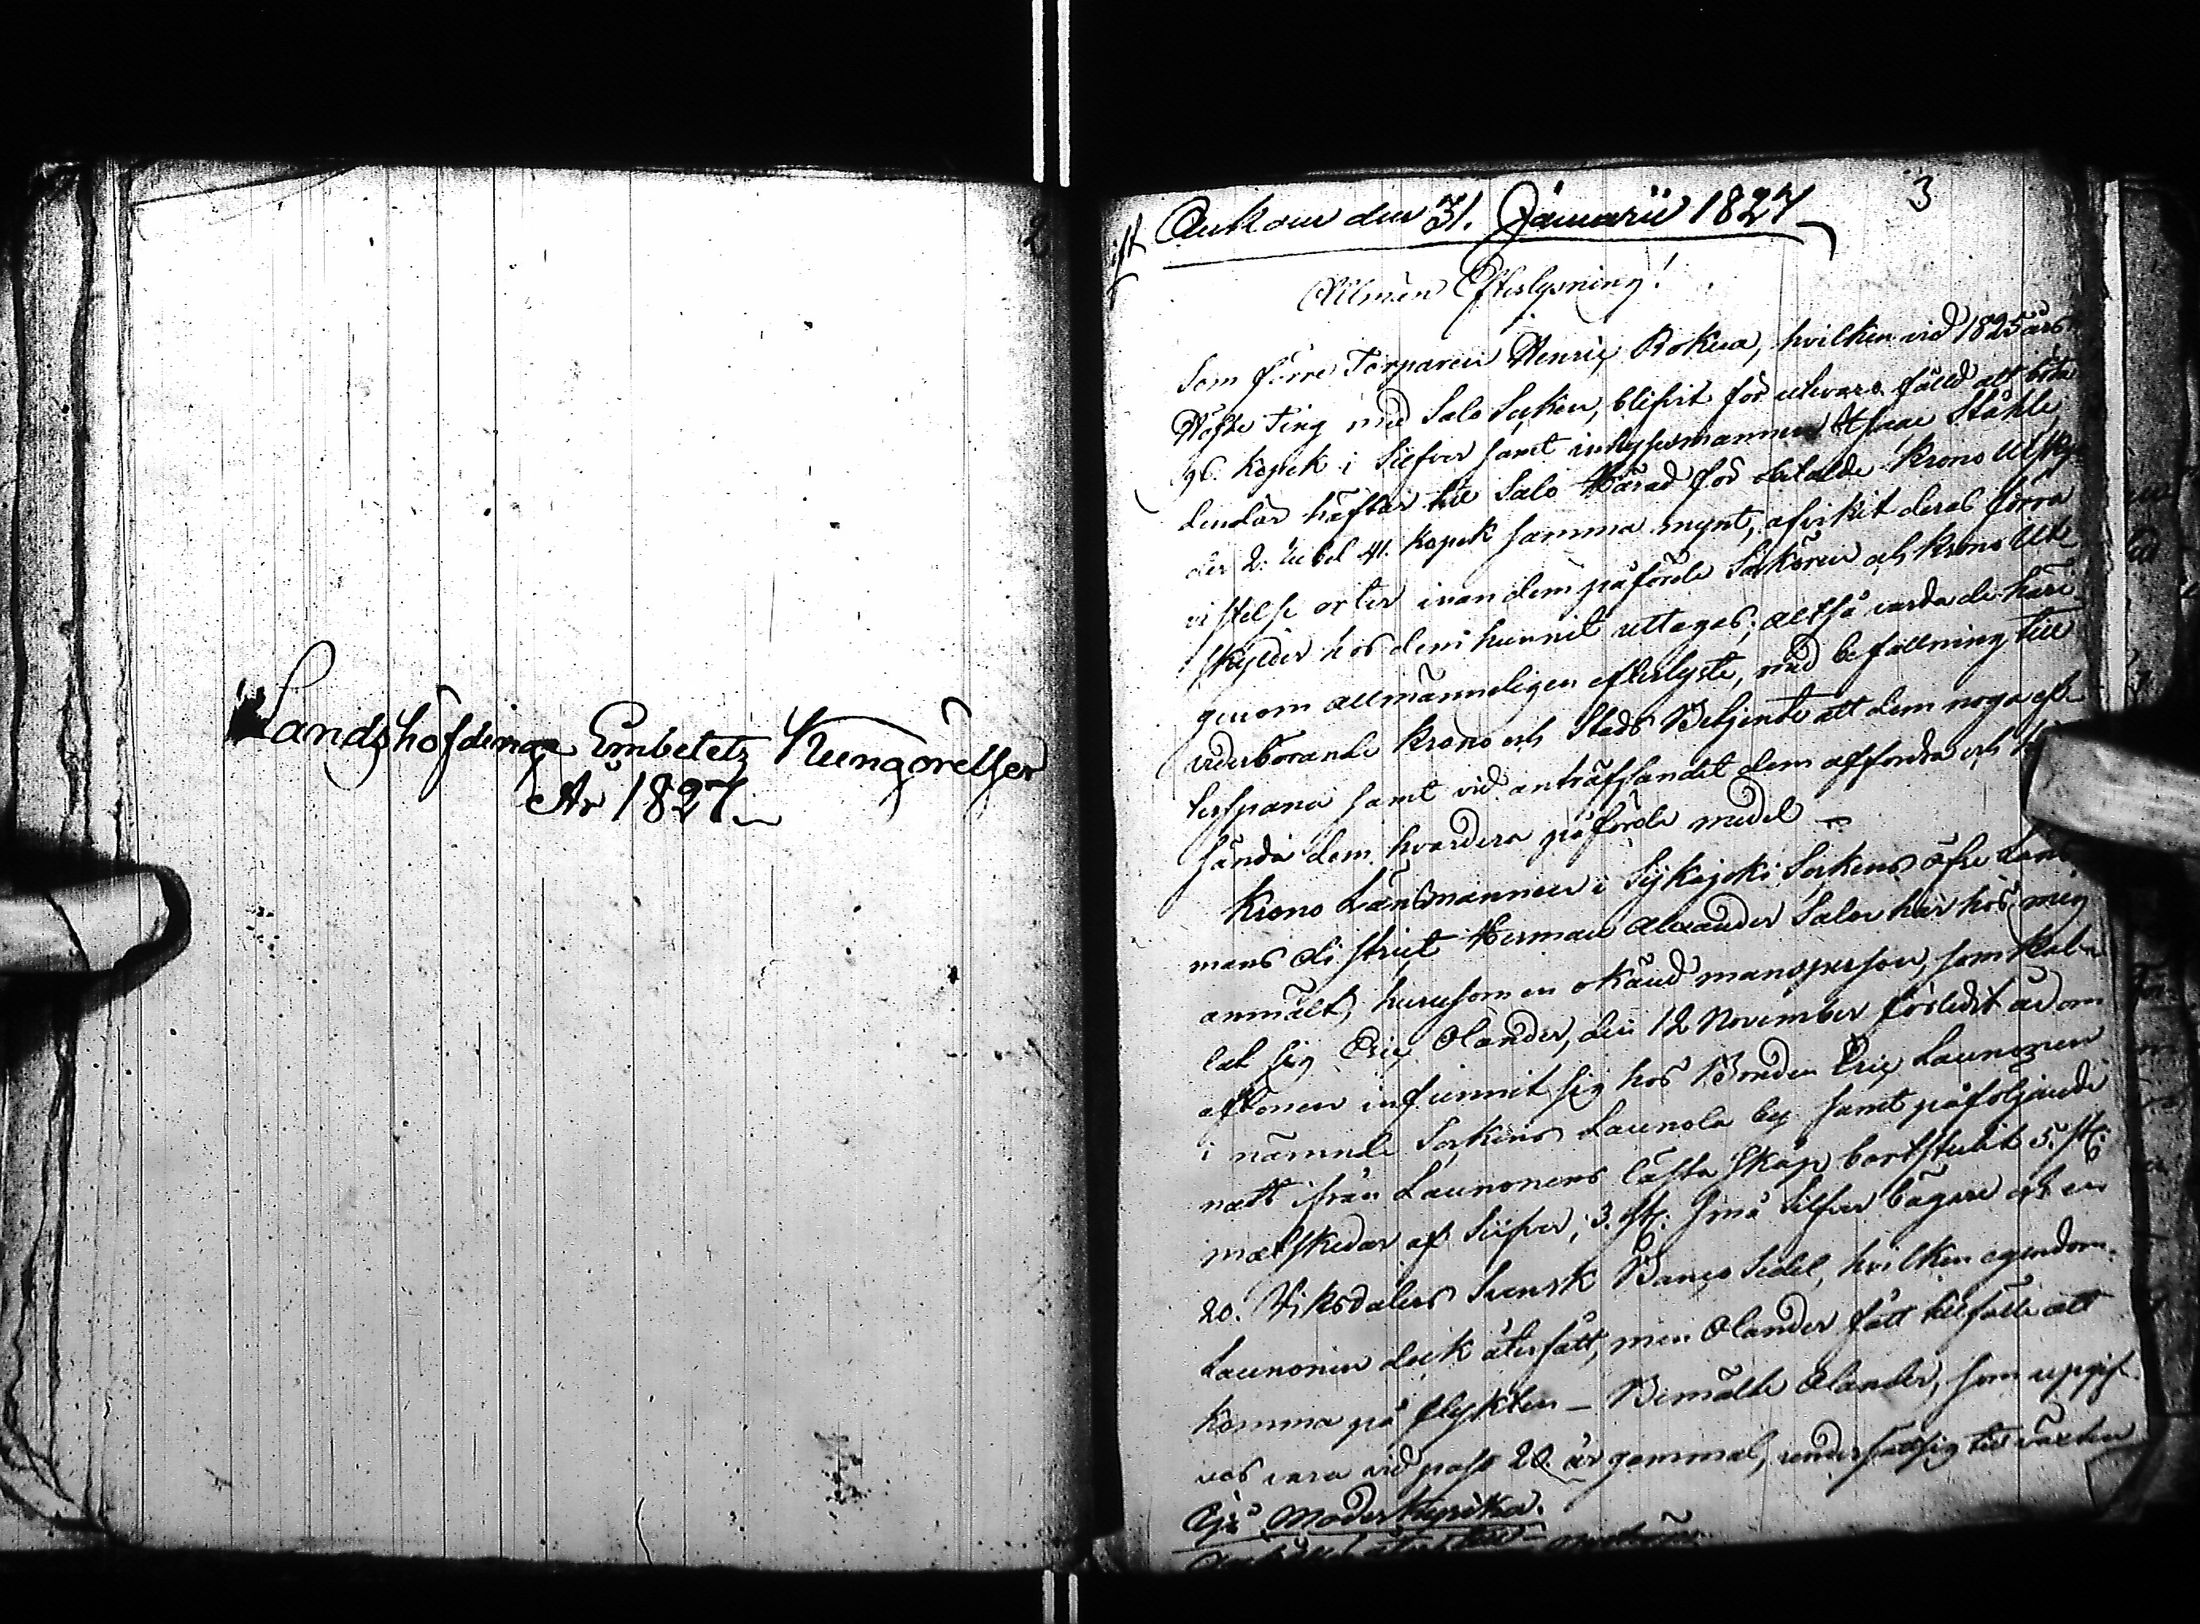 2
Landshöfdinge Embetetz Kungörelser
År 1827
3
Ankom den 31. Januarii 1827
Allmän Efterlysning!
Som förre Torparen Henric Rokua, hvilken vid 1825 års
Höste Ting med Salo Socken, blifvit för utevaro fälld att böta
96. kopek i Silfver samt inhysesmannen Ståhle
häftar till Salo Härad för betalde Krono Utsky-
der 2. rubel 41. kopek samma mynt, afvikit deras förra
vistelse orter innan dem påförde Sakören och krono Ut-
skylder hos dem hunnit uttagas; altså varda de häri-
genom allmänneligen efterlyste, med befallning till
vederbörande krono och Stads Betjente att dem noga eft-
terspana samt vid anträffandet dem affordra och
sända dem hvardera påförde medel
Krono Länsmannen i Sijkajoki Sockens öfre Läns-
mans district Herman Alexander Salon har hos mig
anmält, hurusom en okänd mansperson, som kal-
lat sig Eric Olander, den 12 November förledit år om
aftonen infunnit sig hos Bonden Eric Launonen
i nämnde Sockens Launola by samt påföljande
natt ifrån Launonens låsta skåp bortstulit 5. st:
matskedar af Silfver, 3. st: små silfver bägare och en
20. Riksdalers Svensk Banco Sedel, hvilken egendom
Launonen dock återfått, men Olander fått tillfälle att
komma på flykten – Bemälte Olander, som uppgif-
ves vara vid pass 20 år gammal, undersättsig till växten
Moderkyrka.